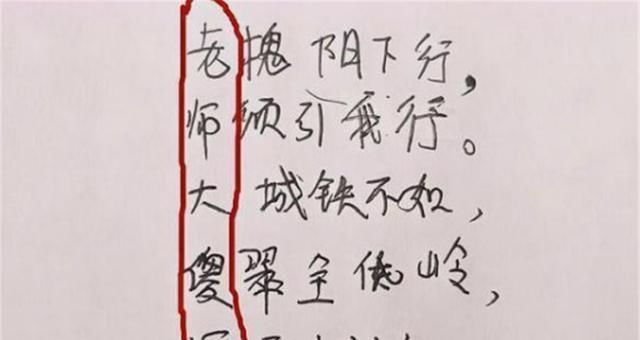 老槐阳下行，
师须引我行。
大城铁不如，
傻翠全低岭，